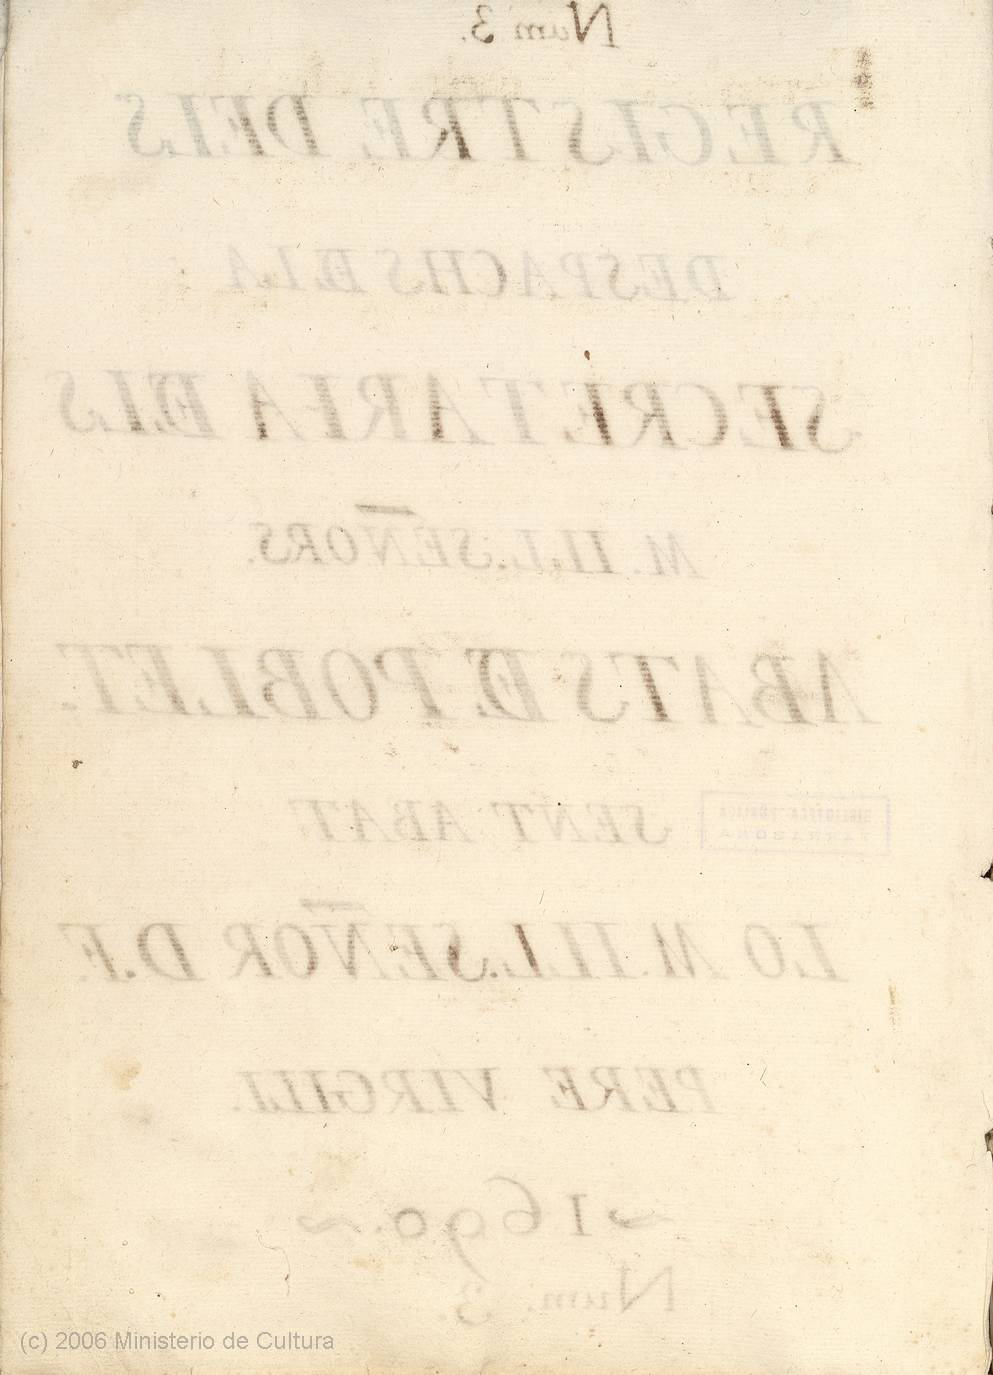 Num 3.
REGISTRE DELS
DESPACHS DE LA
SECRETARIA DELS
M. ILL. SEÑORS.
ABATS DE POBLET.
SENT ABAT.
BIBLIOTECA PÚBLICA
TARRAGONA
LO M. ILL. SEÑOR D. F.
PERE VIRGILI.
~1690.~
Num. 3.
(c) 2006 Ministerio de Cultura